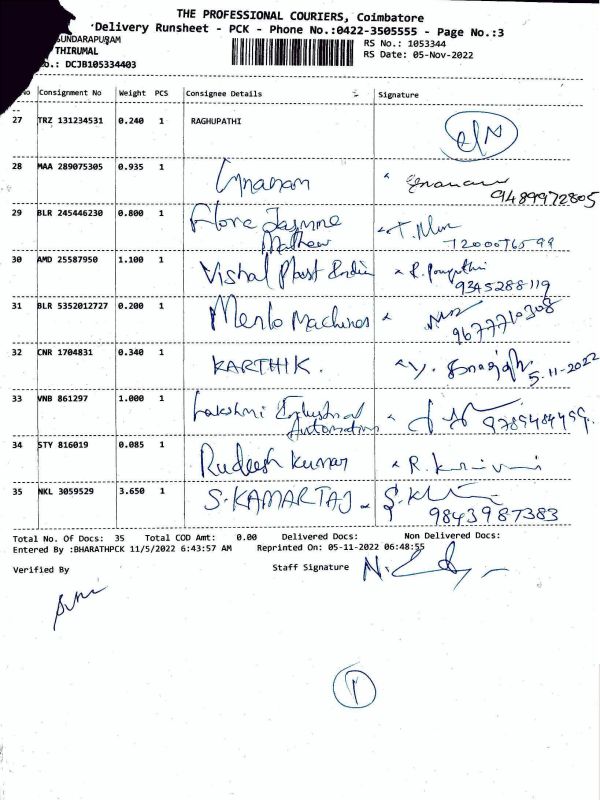 THE PROFESSIONAL COURIERS, Coimbatore
Delivery Runsheet - PCK - Phone No.:0422-3505555 - Page No.:3
SUNDARAPURAM
THIRUMAL
RS No.: 1053344
RS Date: 05-Nov-2022
No.: DCJB105334403
No Consignment No Weight PCS Consignee Details Signature
27 TRZ 131234531 0.240 1 RAGHUPATHI
28 MAA 289075305 0.935 1 Gnanam
9489972805
29 BLR 245446230 0.800 1 Flora Jasmine
Mathew
7200076599
30 AMD 25587950 1.100 1 Vishal Plast India
9345288119
31 BLR 5352012727 0.200 1 Merlo Machines
9677710308
32 CNR 1704831 0.340 1 KARTHIK.
5.11-2022
33 VNB 861297 1.000 1 Lakshmi Industrial
Automation
9789484499
34 STY 816019 0.085 1 Rudeesh Kumar
35 NKL 3059529 3.650 1 S.KAMARTAJ
9843987383
Total No. Of Docs: 35 Total COD Amt: 0.00 Delivered Docs: Non Delivered Docs:
Entered By :BHARATHPCK 11/5/2022 6:43:57 AM Reprinted On: 05-11-2022 06:48:55
Verified By Staff Signature
1